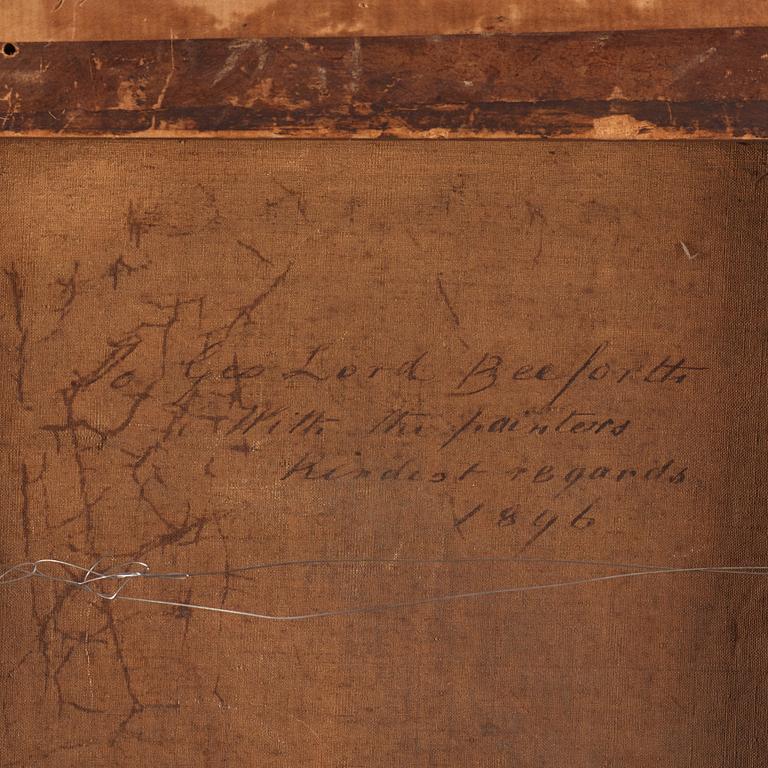 To Geo Lord Beeforth
With the painters
kindest regards
1896